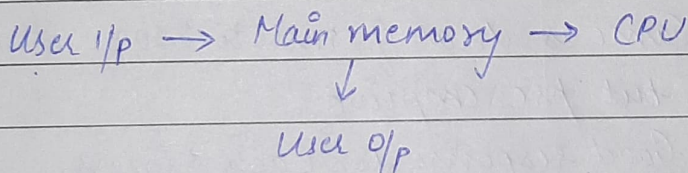 User i/p → Main memory → CPU
↓
User o/p